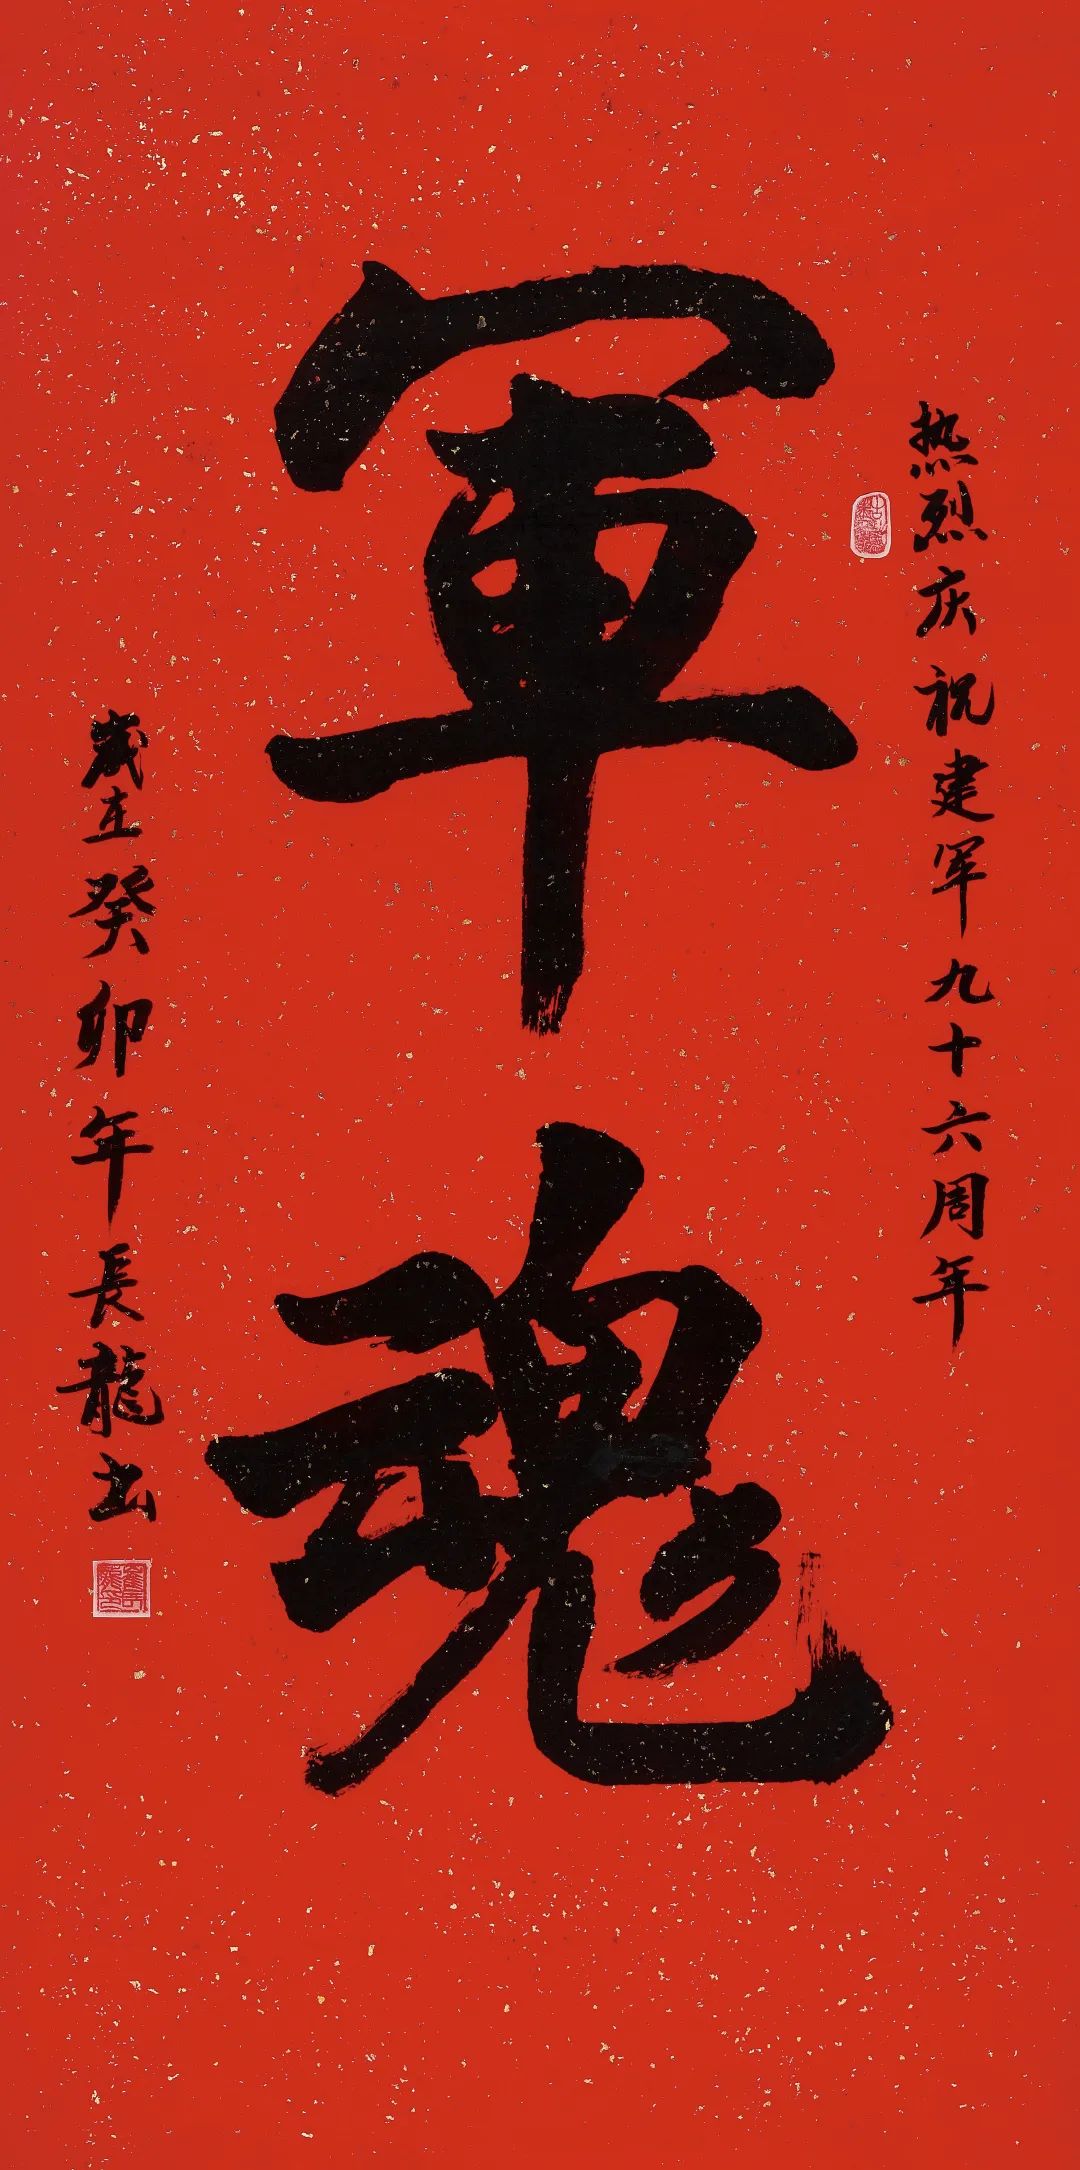 热烈庆祝建军九十六周年
軍魂
歲在癸卯年長龍书